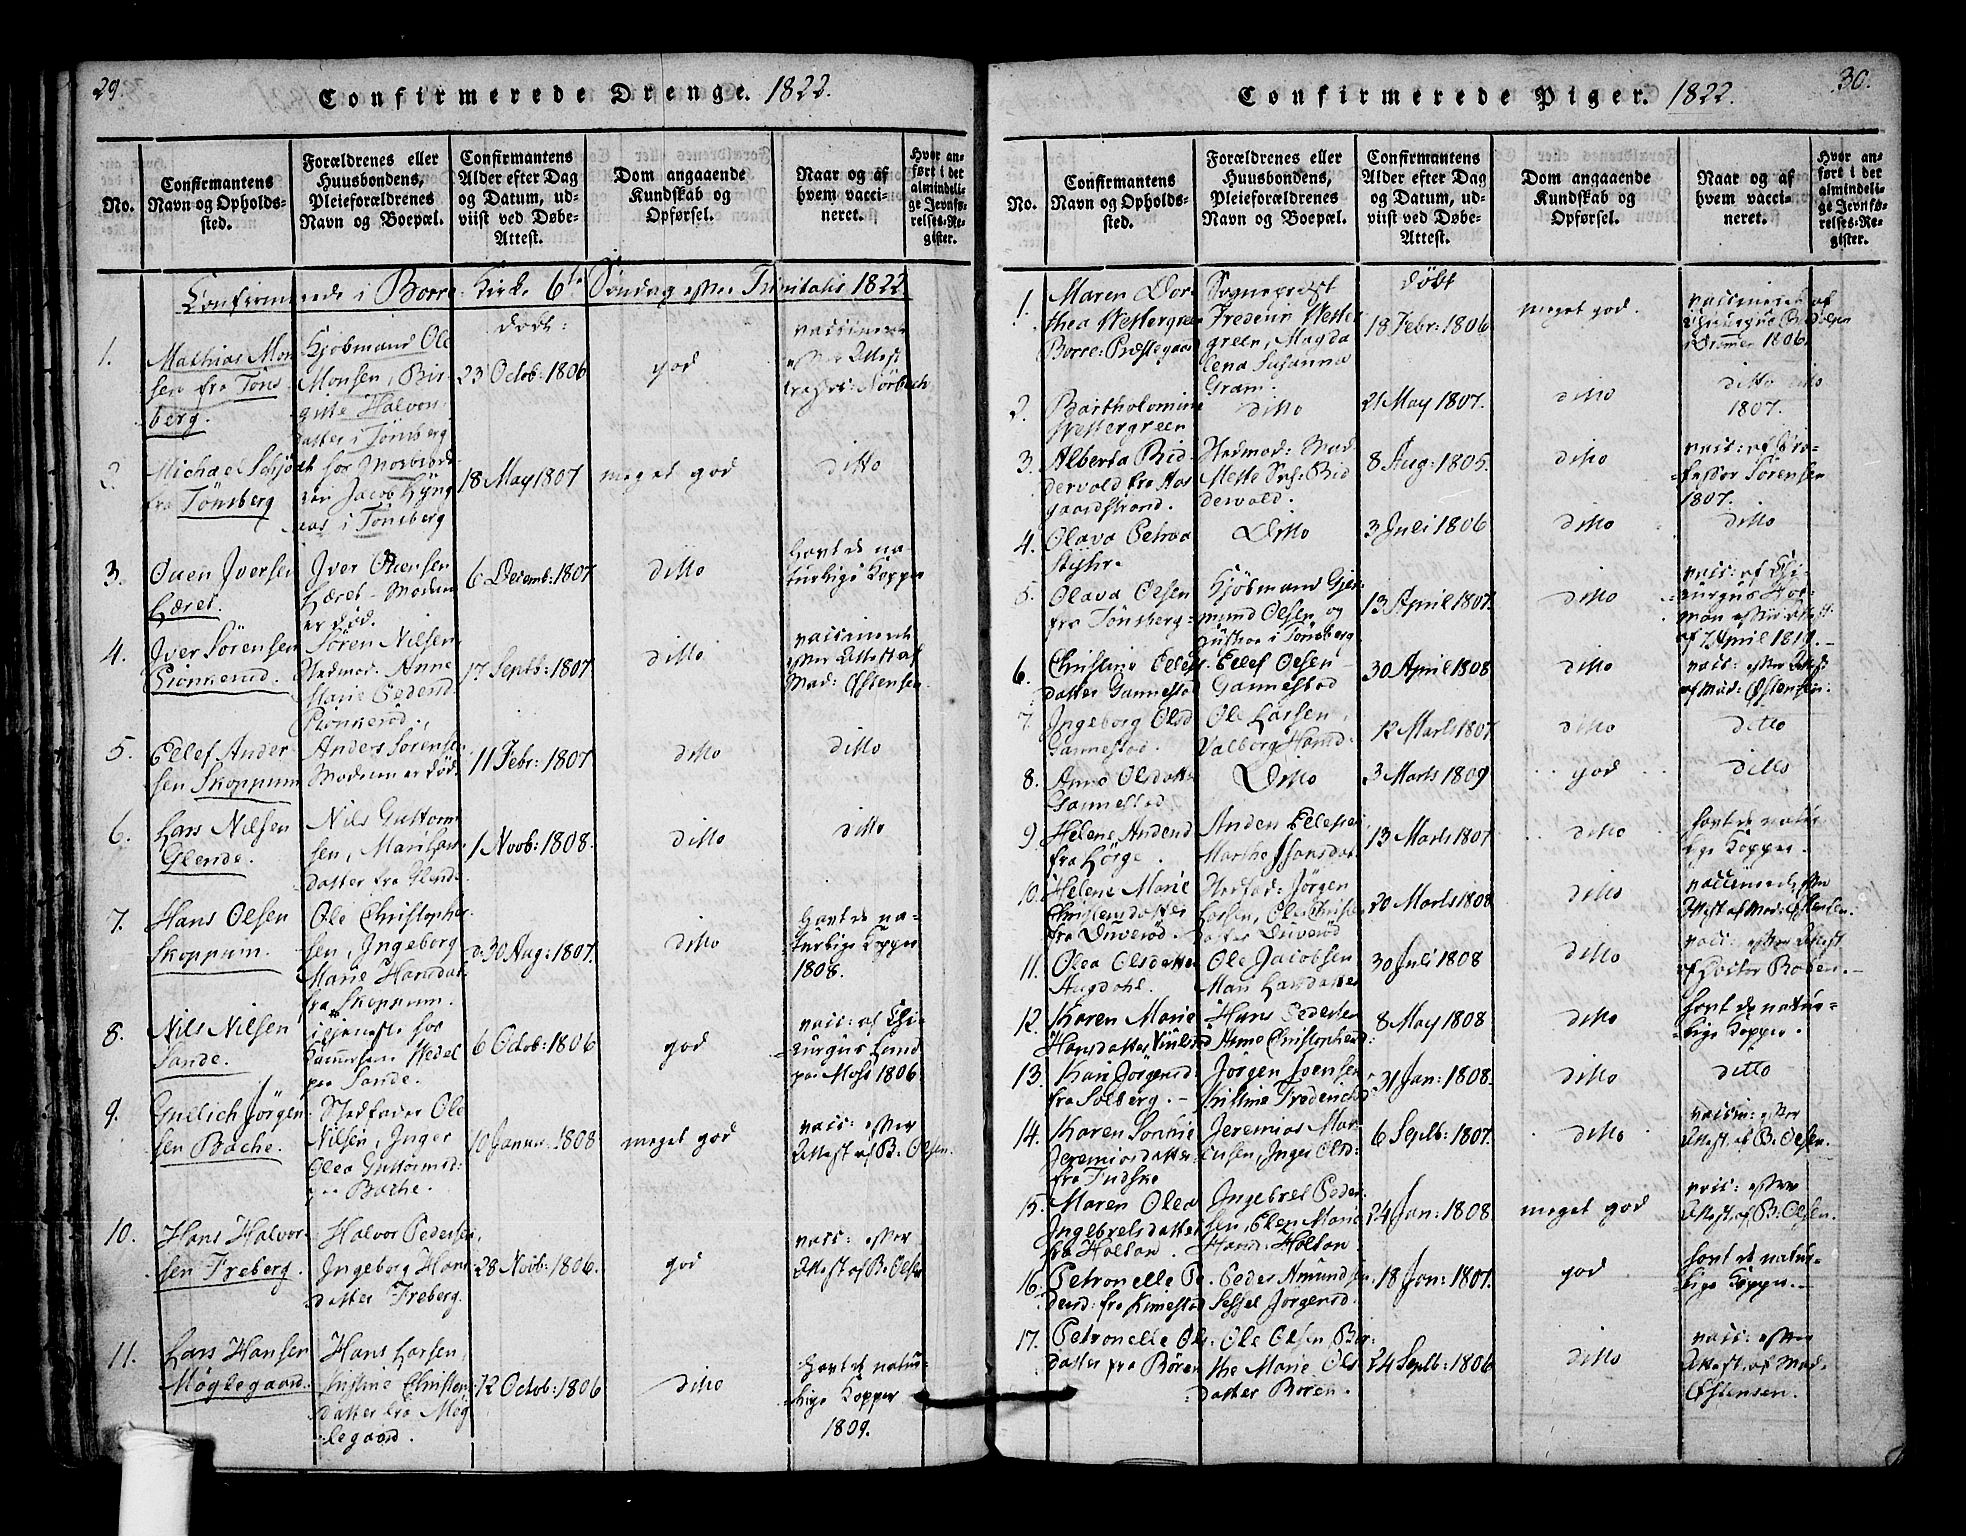 29.
Confirmerede Drenge. 1822.
No.
Confirmantens
Navn og Opholds-
sted.
Forældrenes eller
Huusbondens,
Pleieforældrenes
Navn og Boepæl.
Confirmantens
Alder efter Dag
og Datum, ud-
viist ved Døbe-
Attest.
Dom angaaende
Kundskab og
Opførsel.
Naar og af
hvem vacci-
neret.
Hvor an-
ført i det
almindeli-
ge Jevnfø-
relses-Re-
gister.
Confirmerede i Borre Kirke 6te Søndag efter Trinitatis 1822
1.
Mathias Mon
sen fra Tøns
berg.
Kjøbmand Ole
Monsen, Bir
gitte Halvor
datter i Tønsberg
døbt:
23 Octob: 1806
god
vaccineret
efter Attest
2.
Michael
fra Tønsberg
i Tønsberg
18 May 1807
meget god
ditto
3.
Ouen Iversen
Iver Ouensen
Moderen
er død.
6 Decemb: 1807
ditto
havt de na-
turlige Kopper
4.
Iver Sørensen
Søren Nilsen
Anne
Marie
17 Septb: 1807
ditto
vaccineret
efter Attest af
Mad: Østensen.
5.
Ellef Ander
sen Skoppum
Anders Sørensen
Moderen er død.
11 Febr: 1807
ditto
ditto
6.
Lars Nilsen
Glende.
Nils Guttorm
sen, Mari
datter fra
1 Novb: 1808.
ditto
ditto
7.
Hans Olsen
Skoppum.
Ole Christopher
sen, Ingeborg
Marie Hansdat.
fra Skoppum.
d: 30 Aug: 1807.
ditto
Havt de na-
turlige Kopper
1808.
8.
Nils Nilsen
Sande.
i tjeneste hos
Wedel
paa Sande.
6 Octob: 1806
god
vacc: af Chi-
rurgus Lund
paa Moss 1806.
9.
Gullich Jørgen
sen Bache.
Stedfader Ole
Nilsen, Inger
Olea Guttormsd:
paa Bache.
10 Januar 1808
meget god
vacc: efter
Attest af B. Olsen.
10.
Hans Halvor
sen Freberg.
Halvor Pedersen,
Ingeborg Hans
datter Freberg.
28 Novb: 1806.
god
vacc: efter
Attest af B. Olsen
11.
Lars Hansen
Møglegaard.
Hans Larsen,
Kirstine Christen
datter fra Møg
legaard.
12 Octob: 1806
ditto
Havt de natur-
lige Kopper
1809.
30.
Confirmerede Piger. 1822.
No.
Confirmantens
Navn og Opholds-
sted.
Forældrenes eller
Huusbondens,
Pleieforældrenes
Navn og Boepæl.
Confirmantens
Alder efter Dag
og Datum, ud-
viist ved Døbe-
Attest.
Dom angaaende
Kundskab og
Opførsel.
Naar og af
hvem vacci-
neret.
Hvor an-
ført i det
almindeli-
ge Jevnfø-
relses-Re-
gister.
1.
Maren Doro
thea Westergreen
Borre Præstegaard
Sogneprest
Frederik Wester
green, Magda
lena Susanna
Gram.
døbt
18 Febr: 1806
meget god.
vaccineret af
Chirurgus
1806.
2.
Bartholomine
Westergreen
ditto
21 May 1807.
ditto
ditto ditto
1807.
3.
Alberta Bid
dervold fra Aas
gaardstrand.
Mette
Bid
dervold.
8 Aug: 1805.
ditto
vacc: af Pro-
fessor Sørensen
1807.
4.
Olava Petrea
Ditto
3 Juli 1806
ditto
ditto
5.
Olava Olsen
fra Tønsberg
Kjøbmand Gjer
mund Olsen og
Hustrue i Tønsberg
13 April 1807.
ditto
vacc: af Chi-
rurgus
efter Attest
af 7 April 1819.
6.
Christine Ellefs
datter Gannestad
Ellef Olsen
Gannestad
30 April 1808
ditto
vacc: efter Attest
af Mad: Østensen:
7.
Ingeborg Olsd
Gannestad.
Ole Larsen,
Valborg Hansd.
12 Marts 1807
ditto
ditto
8.
Anne Olsdatter
Gannestad
Ditto
3 Marts 1809
god
ditto
9.
Helene Andersd
fra Lørge.
Anders Ellefsen
Marthe Hansdat.
13 Marts 1807
ditto
havt de natur-
lige Kopper.
10.
Helene Marie
Christensdatter
fra Duverød.
Jørgen
Larsen,
datter Duverød
20 Marts 1808
ditto
vaccineret efter
Attest af Mad: Østensen.
11.
Olea Olsdatter
Augdahl.
Ole Jacobsen
Mari Larsdatter
30 Juli 1808
ditto
vacc: efter Attest
af Doctor Boben.
12.
Karen Marie
Hansdatter
Hans Pedersen
Anne Christophersd:
8 May 1808
ditto
havt de natur-
lige Kopper.
13.
Kari Jørgensd:
fra Solberg.
Jørgen Ivensen
Kistine Fredericksd
31 Jan: 1808.
ditto
ditto
14.
Karen Sophie
Jeremiasdatter
fra
Jeremias Mar
Inger Olsd:
6 Septb: 1807.
ditto
vaccin: efter
Attest af B. Olsen.
15.
Maren Olea
Ingebretsdatter
fra Holtan.
Ingebret Peder
sen, Elen Marie
Hansd: Holtan
24 Jan: 1808
meget god
vacc: efter
Attest af B. Olsen.
16.
Petronelle Pe
dersd: fra Kimestad
Peder Amundsen
Sessel Jørgensd.
18 Jan: 1807.
god
havt de natur-
lige Kopper.
17.
Petronelle Ols
datter fra Boren
Ole Olsen, Ber
the Marie Ols
datter Boren.
24 Septb: 1806
ditto
vacc: efter
Attest af Mad:
Østensen.